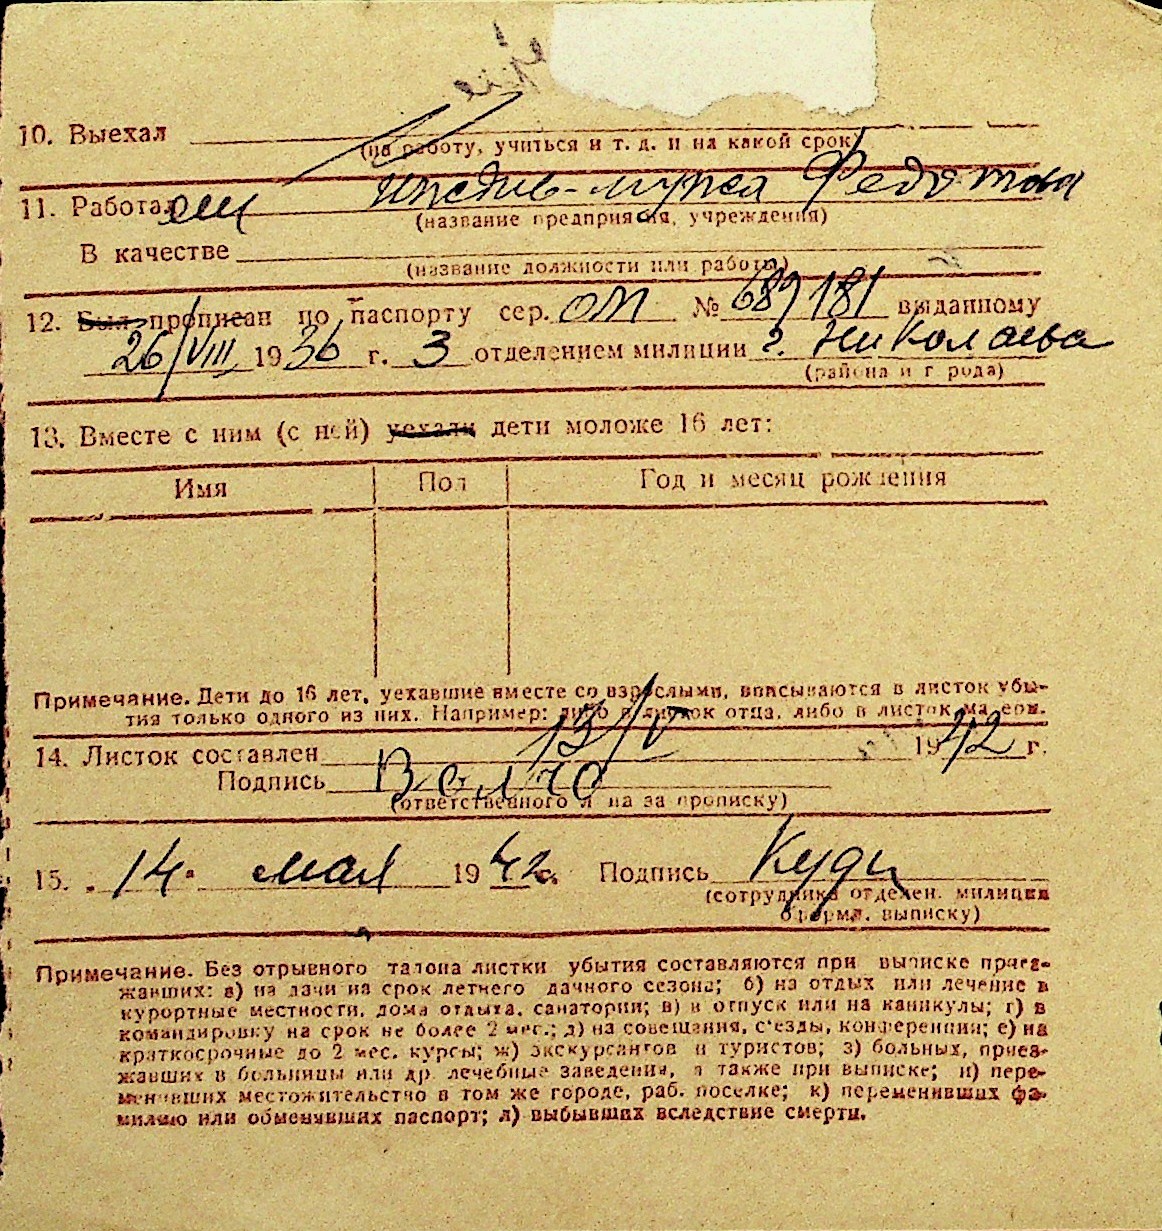 10. Выехал
(на работу, учиться и т. д. и на какой срок)
11. Работал Федотова
(название предприятия, учреждения)
В качестве
(название должности или работы)
12. Был прописан по паспорту сер. ОМ № 689181 выданному
26/VIII 1936 г. 3 отделением милиции г. Николаева
(района и г рода)
13. Вместе с ним (с ней) уехали дети моложе 16 лет:
Имя Пол Год и месяц рождения
Примечание. Дети до 16 лет, уехавшие вместе со взрослыми, вписываются в листок убы-
тия только одного из них. Например: либо в листок отца, либо в листок матери.
14. Листок составлен 13/V 1942 г.
Подпись
(ответственного л на за прописку)
15. 14. мая 1942 г. Подпись Куди
(сотрудника отделен. милиции
оформл. выписку)
Примечание. Без отрывного талона листки убытия составляются при выписке приез-
жавших: а) на дачи на срок летнего дачного сезона; б) на отдых или лечение в
курортные местности, дома отдыха, санатории; в) в отпуск или на каникулы; г) в
командировку на срок не более 2 мес.; д) на совещания, с'езды, конференции; е) на
краткосрочные до 2 мес. курсы; ж) экскурсантов и туристов; з) больных, приез-
жавших в больницы или др. лечебные заведения, а также при выписке; и) пере-
менивших местожительство в том же городе, раб. поселке; к) переменивших фа-
милию или обменявших паспорт; л) выбывших вследствие смерти.